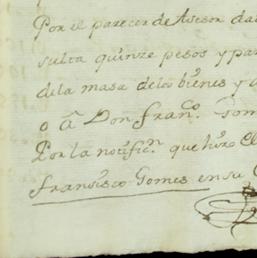 Por el parecer de Asesor da
sulta quinze pesos y par
dela masa delos bienes y
o â Don Fran.co Gom
Por la notific.n que hizo El
fransisco Gomes en su